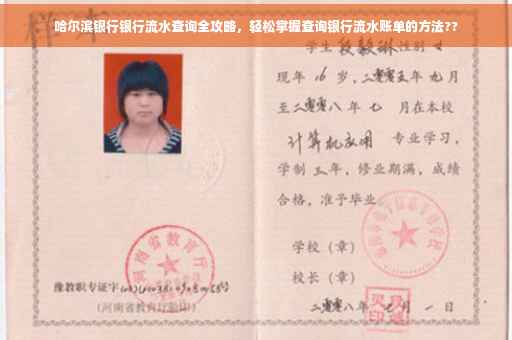 哈尔滨银行银行流水查询全攻略，轻松掌握查询银行流水账单的方法??
学生段毅琳性别女
现年16岁，二零零五年九月
至二零零八年七月在本校
计算机应用 专业学习，
学制三年，修业期满，成绩
合格，准予毕业
学校（章）
校长（章）
二零零八年 月一日
河南省教育厅
豫教职专证字
（河南省教育厅验印）